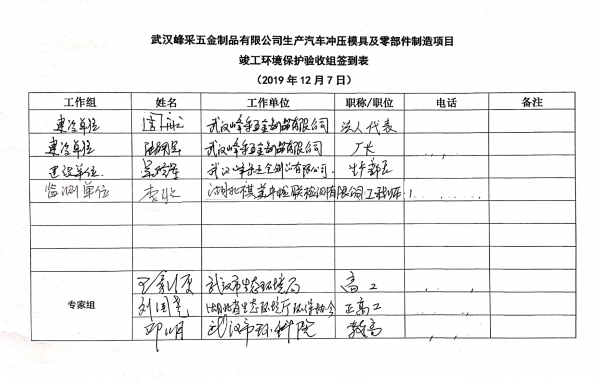 武汉峰采五金制品有限公司生产汽车冲压模具及零部件制造项目
竣工环境保护验收组签到表
（2019 年 12 月 7 日）
工作组 姓名 工作单位 职称/职位 电话 备注
建设单位 武汉峰采五金制品有限公司 法人代表
建设单位 武汉峰采五金制品有限公司 厂长
建设单位 武汉峰采五金制品有限公司 生产部长
监测单位 李欣 检测有限公司 工程师
武汉市生态环境局 高工
专家组 刘国 湖北省生态环境厅环保协会 正高工
邓明 武汉市环科院 教高